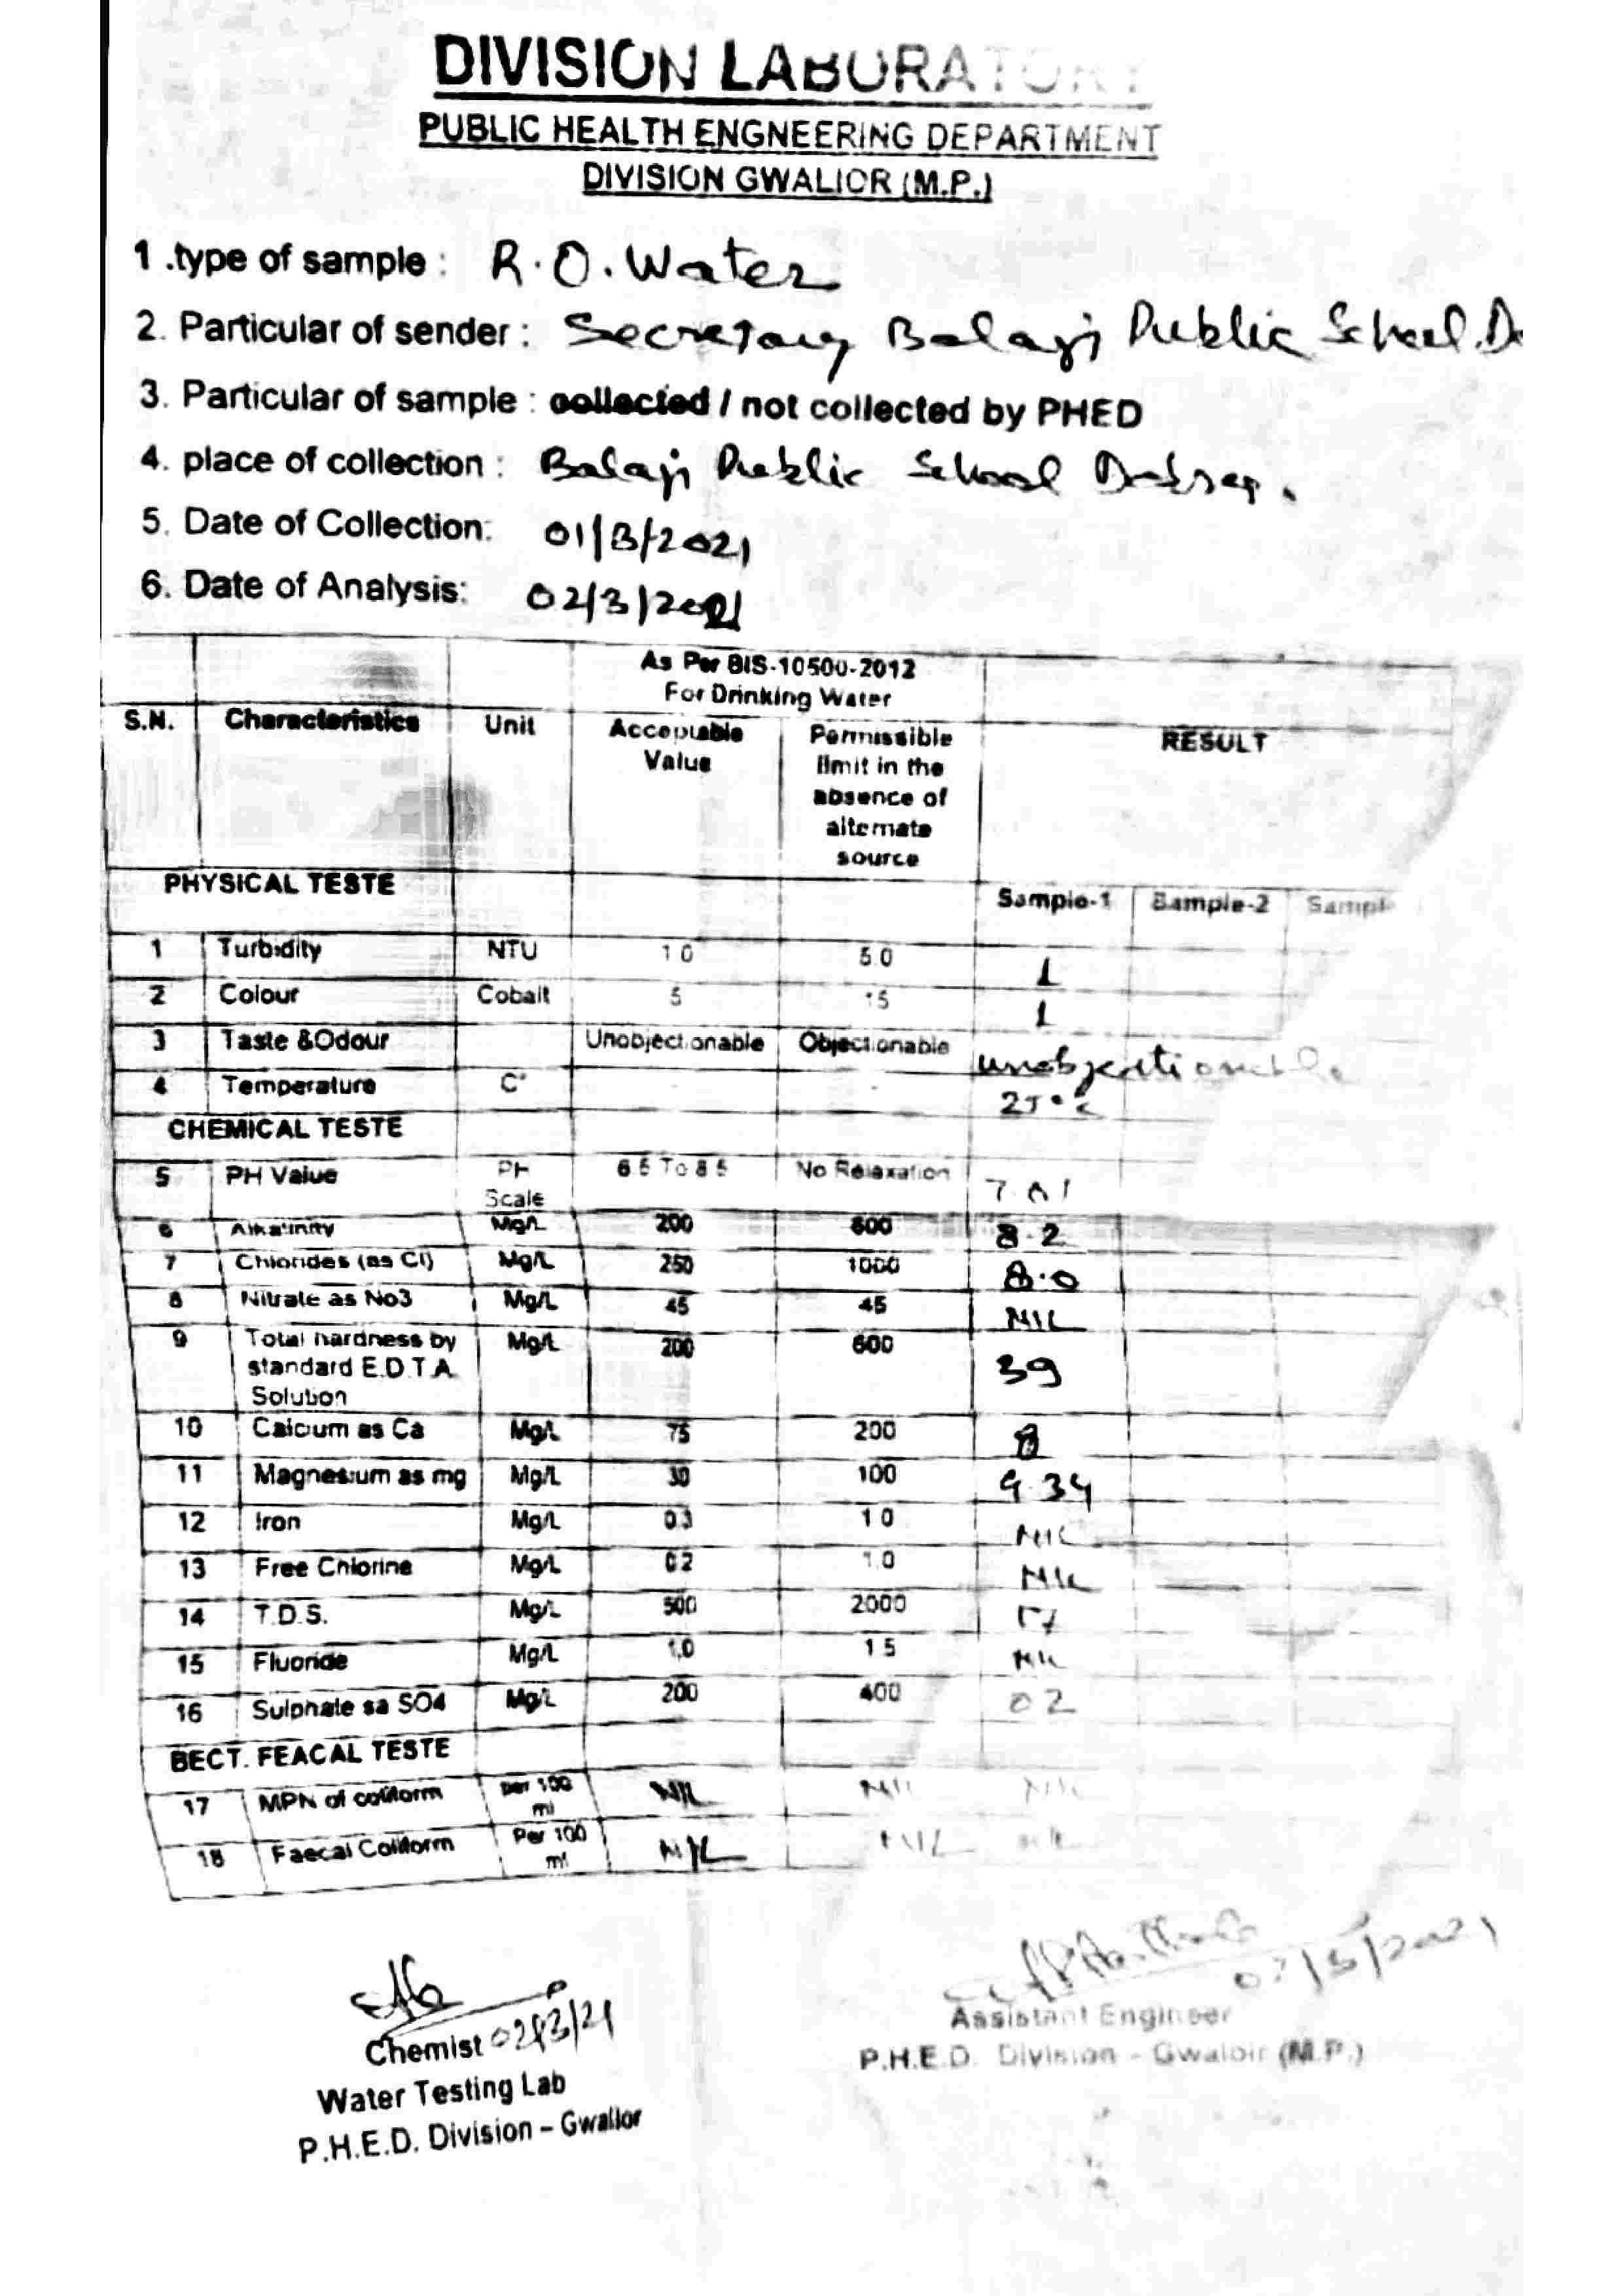 DIVISION LABORATORY
PUBLIC HEALTH ENGNEERING DEPARTMENT
DIVISION GWALIOR (M.P.)
1 .type of sample : R.O. Water
2. Particular of sender : Secretary Balaji Public School
3. Particular of sample : collected / not collected by PHED
4. place of collection : Balaji Public School
5. Date of Collection: 01/3/2021
6. Date of Analysis: 02/3/2021
As Per BIS-10500-2012
For Drinking Water
S.N. Characteristics Unit Acceptable Value Permissible limit in the absence of alternate source RESULT
PHYSICAL TESTE Sample-1 Sample-2 Sampl
1 Turbidity NTU 1.0 5.0 1
2 Colour Cobalt 5 15 1
3 Taste &Odour Unobjectionable Objectionable unobjectionable
4 Temperature C° - - 25°C
CHEMICAL TESTE
5 PH Value PH Scale 6.5 To 8.5 No Relaxation
6 Alkalinity Mg/L 200 600 8.2
7 Chlorides (as Cl) Mg/L 250 1000 8.0
8 Nitrate as No3 Mg/L 45 45 NIL
9 Total hardness by standard E.D.T.A. Solution Mg/L 200 600 39
10 Calcium as Ca Mg/L 75 200 8
11 Magnesium as mg Mg/L 30 100 9.34
12 Iron Mg/L 0.3 1.0 NIL
13 Free Chlorine Mg/L 0.2 1.0 NIL
14 T.D.S. Mg/L 500 2000
15 Fluoride Mg/L 1.0 1.5 NIL
16 Sulphate sa SO4 Mg/L 200 400 02
BECT. FEACAL TESTE
17 MPN of coliform per 100 ml NIL NIL NIL
18 Faecal Coliform Per 100 ml NIL NIL NIL
Chemist 02/3/21
Water Testing Lab
P.H.E.D. Division – Gwalior
02/3/2021
Assistant Engineer
P.H.E.D. Division - Gwaloir (M.P.)